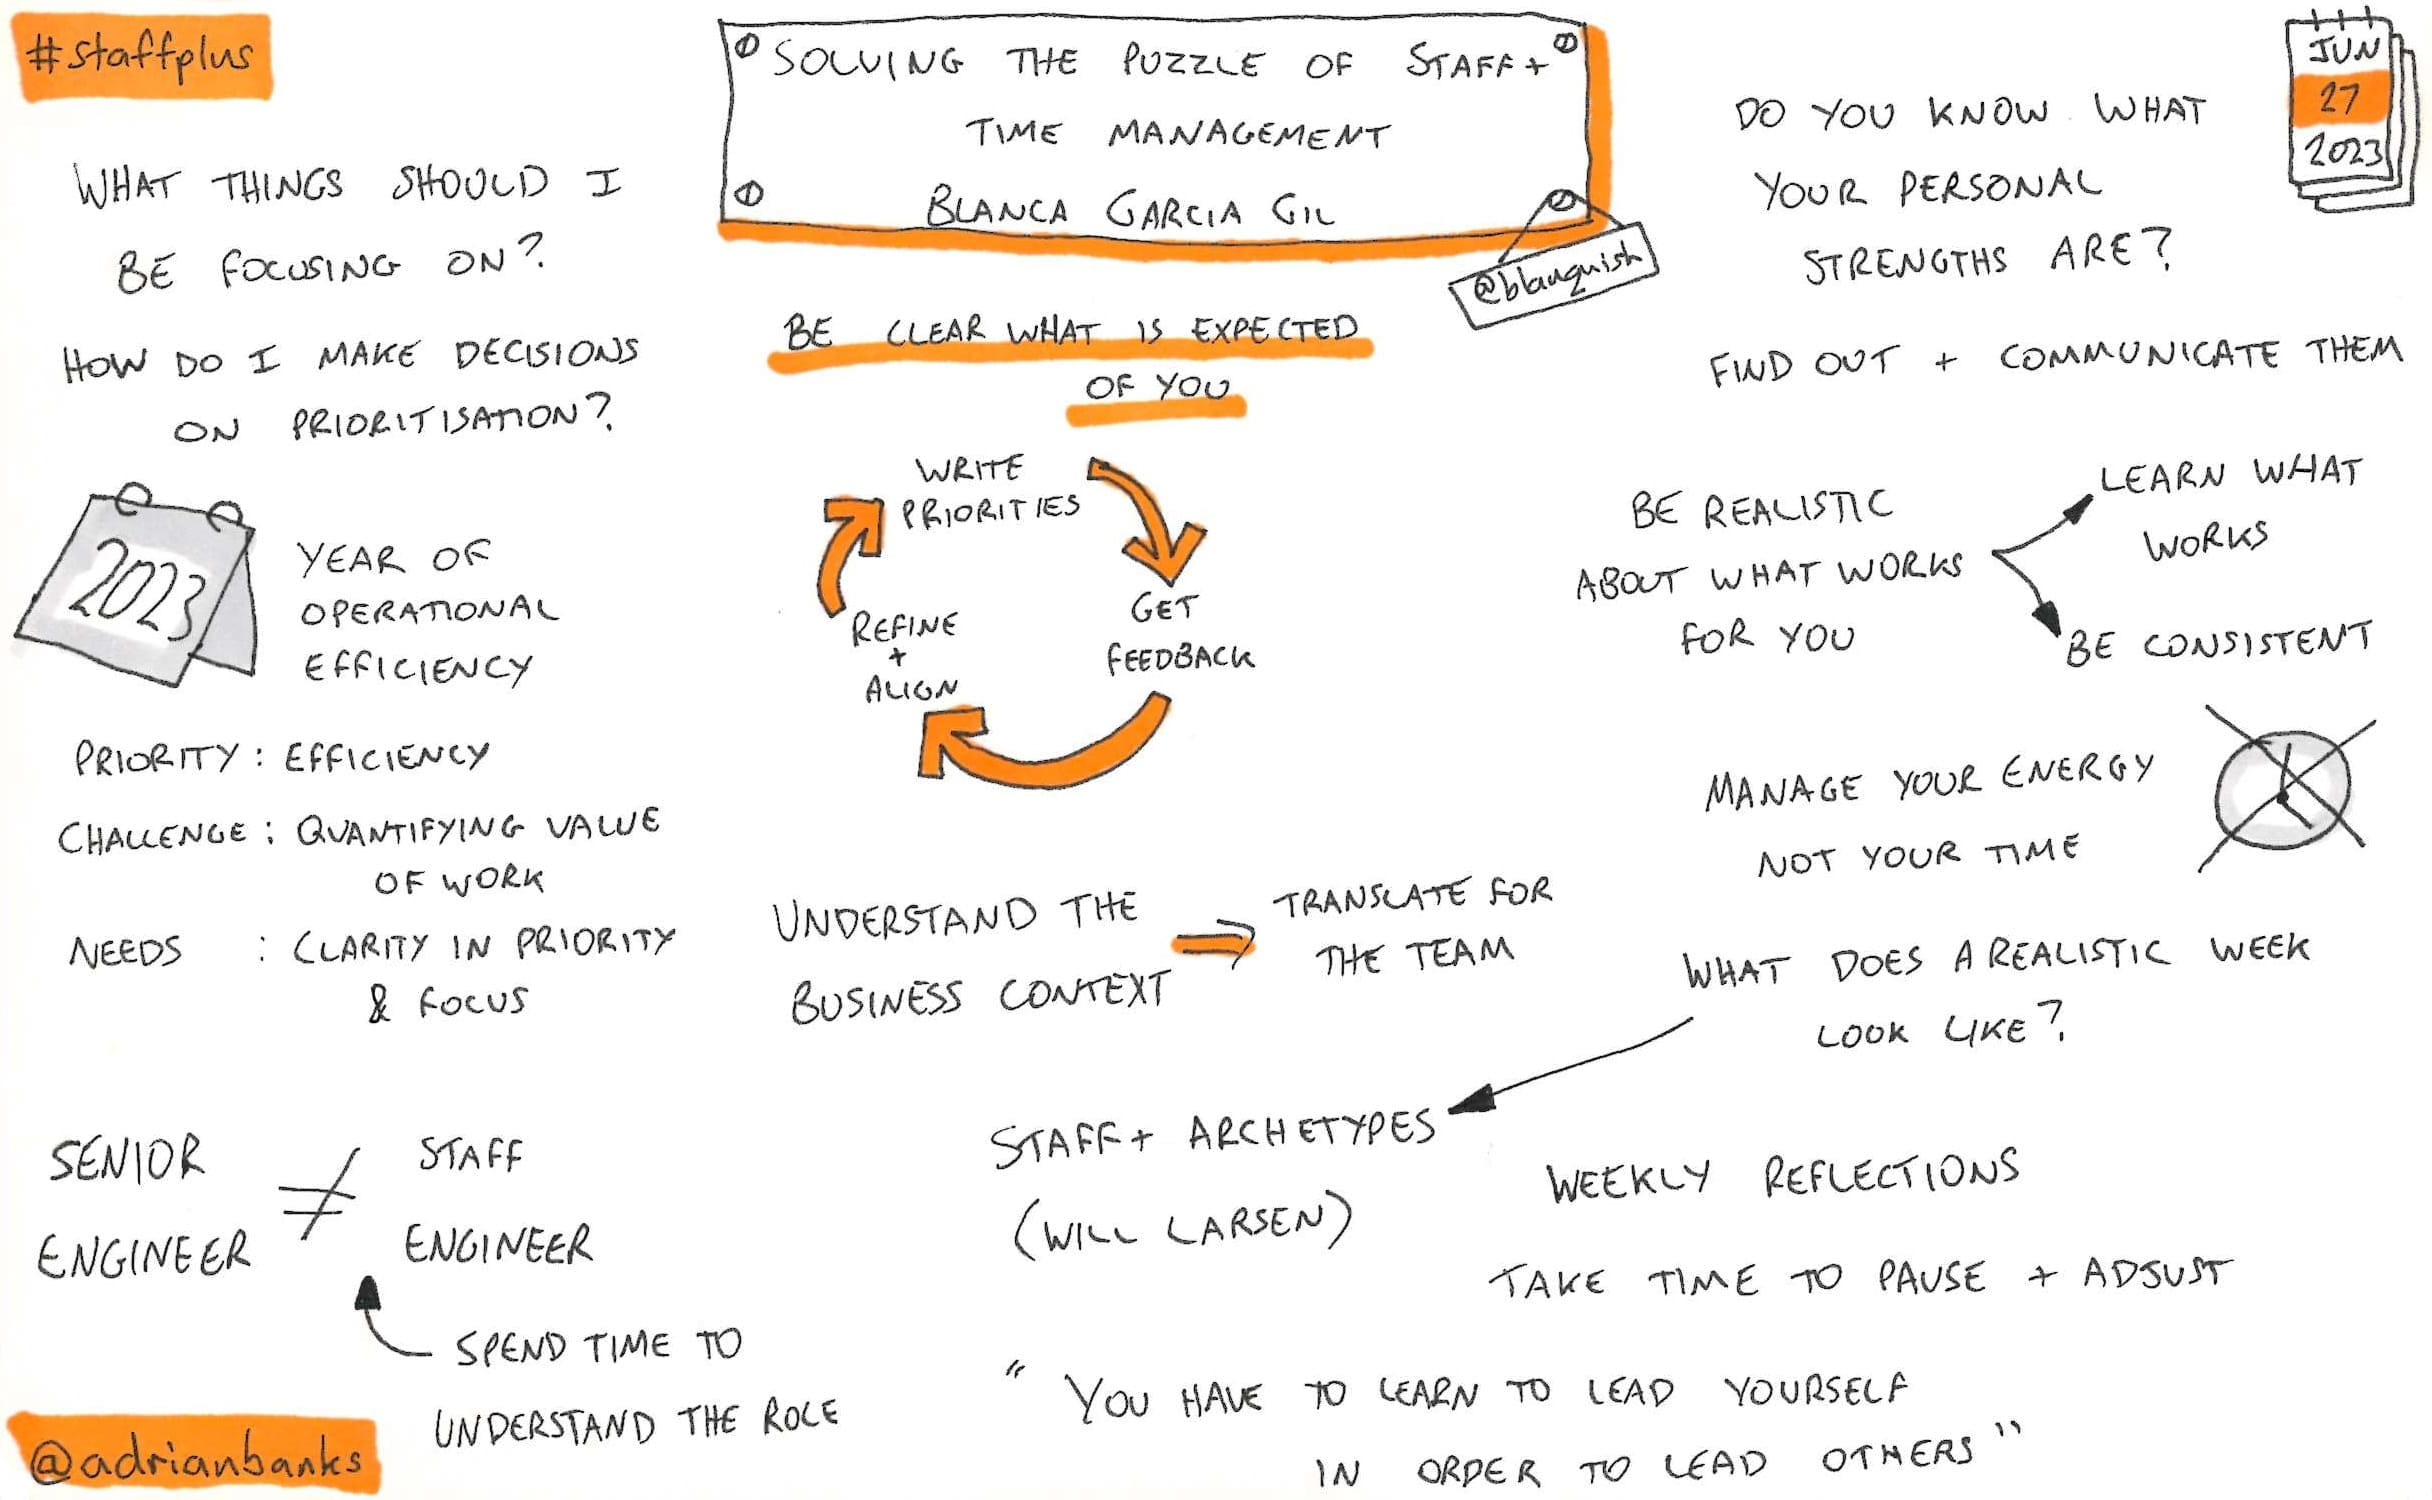 #staffplus
SOLVING THE PUZZLE OF STAFF+
TIME MANAGEMENT
BLANCA GARCIA GIL
@blanquish
JUN
27
2023
WHAT THINGS SHOULD I
BE FOCUSING ON?
HOW DO I MAKE DECISIONS
ON PRIORITISATION?
2023
YEAR OF
OPERATIONAL
EFFICIENCY
PRIORITY : EFFICIENCY
CHALLENGE : QUANTIFYING VALUE
OF WORK
NEEDS : CLARITY IN PRIORITY
& FOCUS
SENIOR
ENGINEER
≠
STAFF
ENGINEER
SPEND TIME TO
UNDERSTAND THE ROLE
@adrianbanks
BE CLEAR WHAT IS EXPECTED
OF YOU
WRITE
PRIORITIES
GET
FEEDBACK
REFINE
+
ALIGN
UNDERSTAND THE
BUSINESS CONTEXT
TRANSLATE FOR
THE TEAM
DO YOU KNOW WHAT
YOUR PERSONAL
STRENGTHS ARE?
FIND OUT + COMMUNICATE THEM
BE REALISTIC
ABOUT WHAT WORKS
FOR YOU
LEARN WHAT
WORKS
BE CONSISTENT
MANAGE YOUR ENERGY
NOT YOUR TIME
WHAT DOES A REALISTIC WEEK
LOOK LIKE?
STAFF+ ARCHETYPES
(WILL LARSEN)
WEEKLY REFLECTIONS
TAKE TIME TO PAUSE + ADJUST
"YOU HAVE TO LEARN TO LEAD YOURSELF
IN ORDER TO LEAD OTHERS"